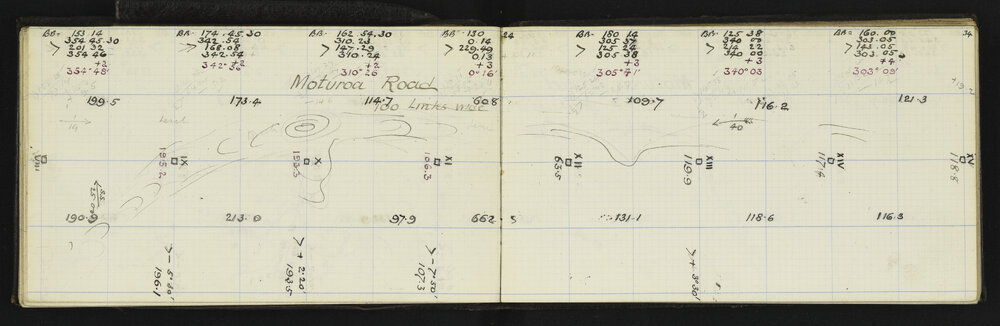 BB= 153 14
354 45.30
> 201 32
354 46
+2
354°48'
BB= 174.45.30
342 54
> 168.08
342.54
+2
BB= 162 54.30
310.23
> 147.29
310.24
+2
310°26
BB= 130
0 14
> 229.49
0.13
+3
0°16'
24
BB= 180 14
305 37
> 125 24
305 38
+3
305°41'
BB= 125 38
340 00
> 214 22
340 00
+3
340°03
BB= 160.00
303.05
> 143.05
303.05
+4
303°09'
34
Moturoa Road
100 Links wide
199.5
173.4
114.7
608
109.7
116.2
121.3
1/19
level
1/40
VIII
IX
195.2
X
193.3
XI
106.3
XII
63.5
XIII
119.9
XIV
117.6
XV
118.8
190.9
213.0
97.9
662.5
131.1
118.6
116.3
> - 5°50'
196.1
> + 2°20'
193.5
> - 7°50'
107.3
> + 3°30'